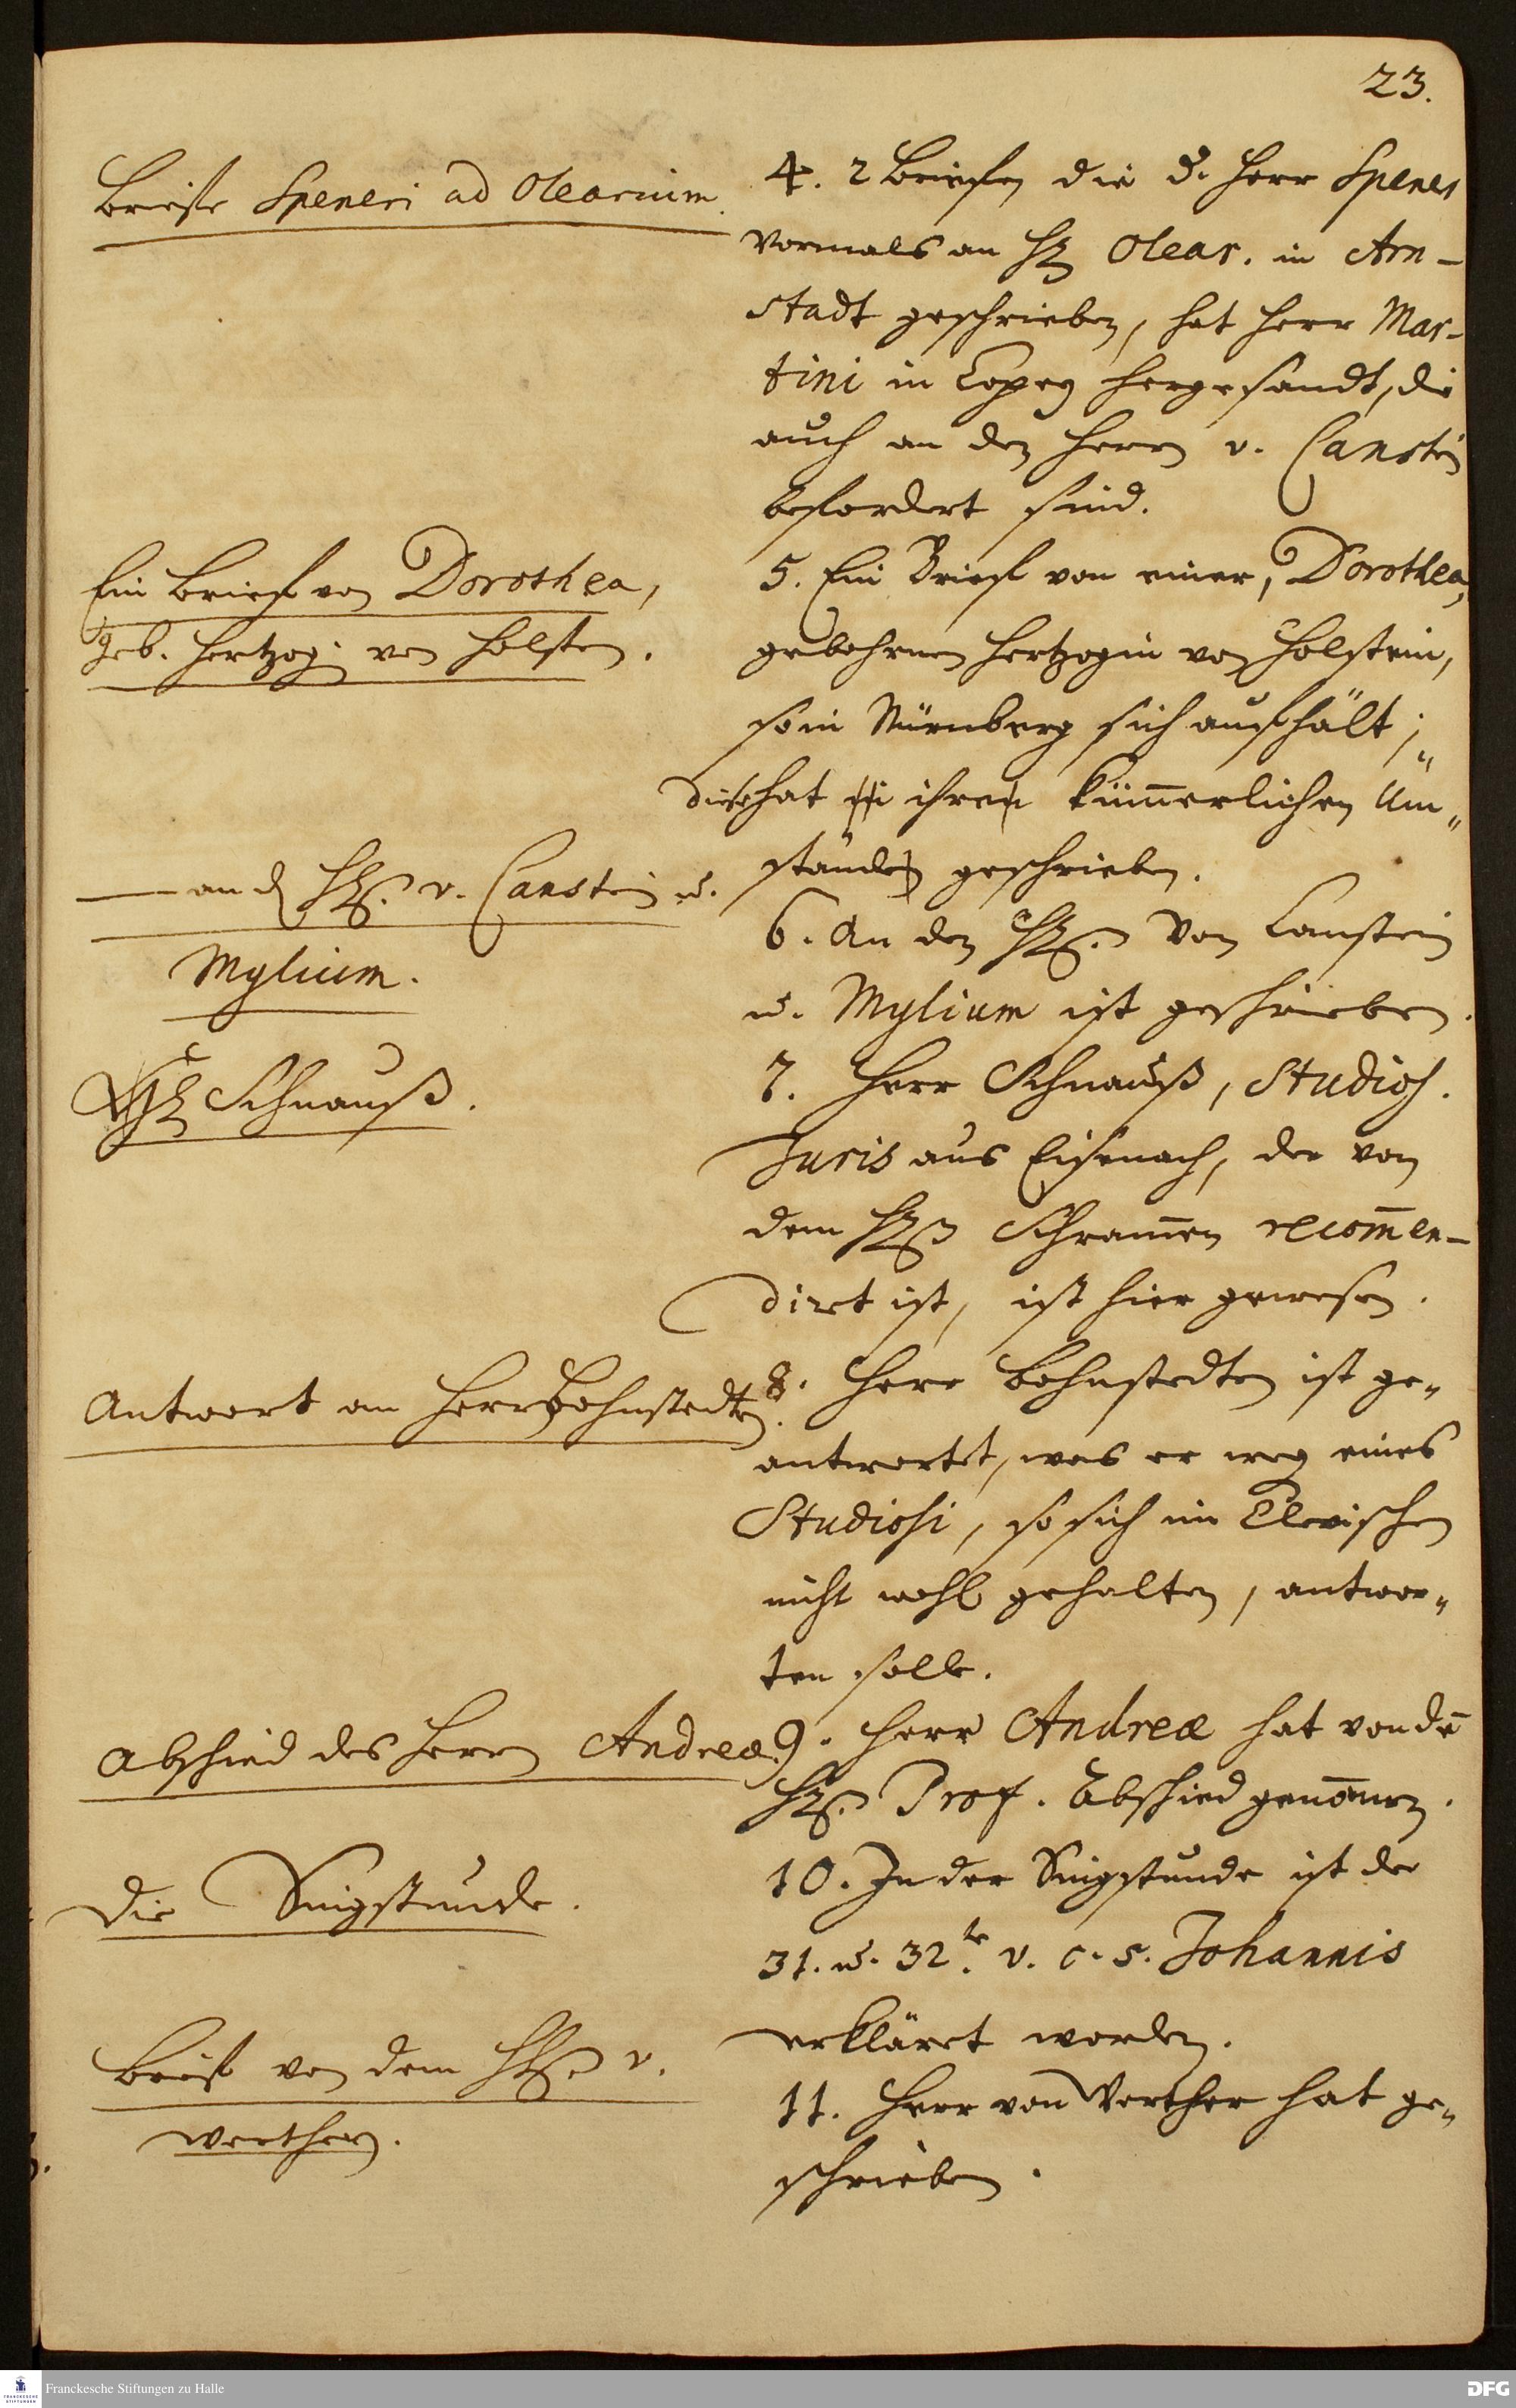 23.
Brieffe Speneri ad Olearium.
4. 2 Briefen die d. Herr Spener
vormals an H. Olear. in Arn-
stadt geschrieben, hat Herr Mar-
tini in Copey hergesandt, die
auch an den Herrn v. Canstein
befordert sind.
Ein Brief von Dorothea,
geb. Hertzog. von Holstein.
5. Ein Brief von einer, Dorothea,
gebohrnen Hertzogin von Holstein,
so in Nürnberg sich aufhält;
diese hat ihre kümerlichen Um„
stände geschrieben.
— an d H. v. Canstein u.
Mylium.
6. An den H. von Canstein
u. Mylium ist geschrieben.
H. Schnauß.
7. Herr Schnauß, Studios.
Juris aus Eisenach, der von
dem H. Schramen recomen-
dirt ist, ist hier gewesen.
Antwort an Herr Bohnstedten.
8. Herr Bohnstedten ist ge„
antwortet, was er weg eines
Studiosi, so sich im Clevischen
nicht wohl gehalten, antwor„
ten solle.
Abschied des Herrn Andreæ.
9. Herr Andreæ hat von de
H. Prof. Abschied genomen.
Die Singstunde.
10. In der Singstunde ist der
31. u. 32.te v. c. 5. Johannis
erkläret worden.
Brieff von dem H. v.
Werthern.
11. Herr von Werther hat ge„
schrieben.
Franckesche Stiftungen zu Halle
DFG